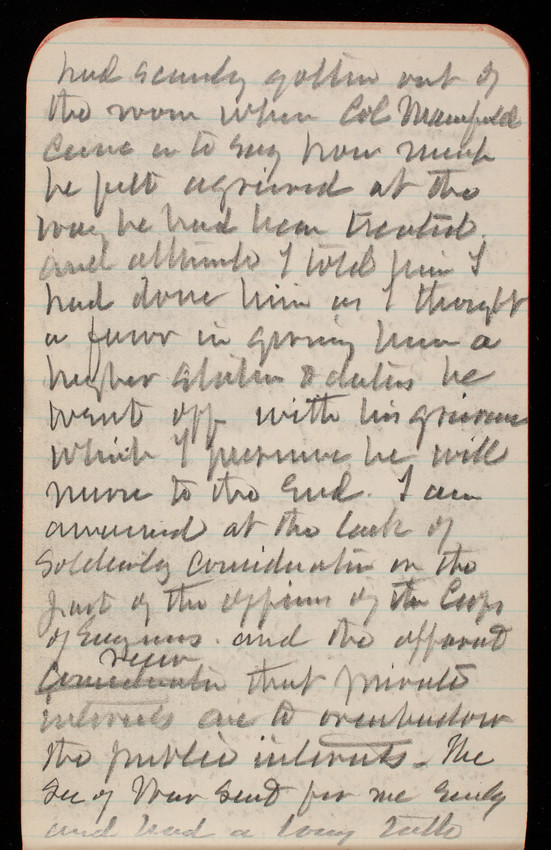 had scarcely gotten out of
the room when Col Mansfield
Came in to say how much
he felt agrieved at the
way he had been treated.
and although I told him I
had done him as I thought
a favor in giving him a
higher station & duties he
went off with his grievance
which I presume he will
nurse to the End. I am
amazed at the lack of
Soldierly consideration on the
part of the officers of the Corps
of Engineers. and the apparent
that private
interests are to overshadow
the public interests - The
Sec of War Sent for me Early
and had a long talk